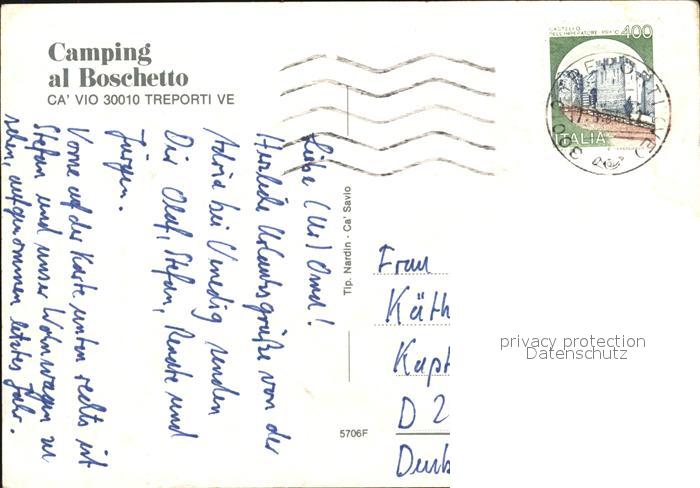 Camping
al Boschetto
CA' VIO 30010 TREPORTI VE
Liebe (Ur) Oma!
Herzliche Urlaubsgrüße von der
Adria bei Venedig senden
Dir Olaf, Stefan, Renate und
Jürgen.
Vorne auf der Karte unten rechts ist
Stefan und unser Wohnwagen zu
sehen, aufgenommen letztes Jahr.
Tip. Nardin - Ca' Savio
5706F
CASTELLO
DELL'IMPERATORE - PRATO
400
ITALIA
Frau
Käth
Kapt
D 2
privacy protection
Datenschutz